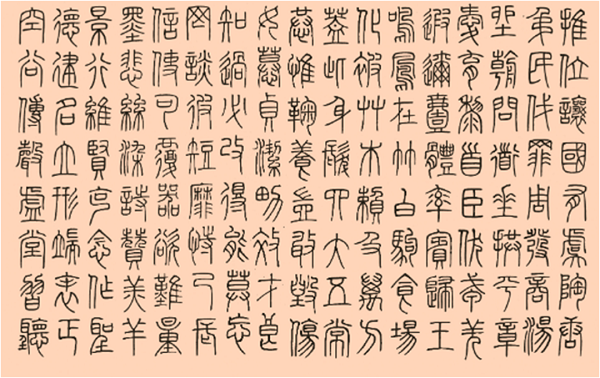 推位讓國有虞陶唐
弔民伐罪周發商湯
坐朝問道垂拱平章
愛育黎首臣伏戎羌
遐邇壹體率賓歸王
鳴鳳在竹白駒食場
化被艸木賴及萬方
蓋此身髮四大五常
恭惟鞠養豈敢毀傷
女慕貞潔男效才良
知過必改得能莫忘
罔談彼短靡恃己長
信使可覆器欲難量
墨悲絲染詩贊羔羊
景行維賢克念作聖
德建名立形端表正
空谷傳聲虛堂習聽